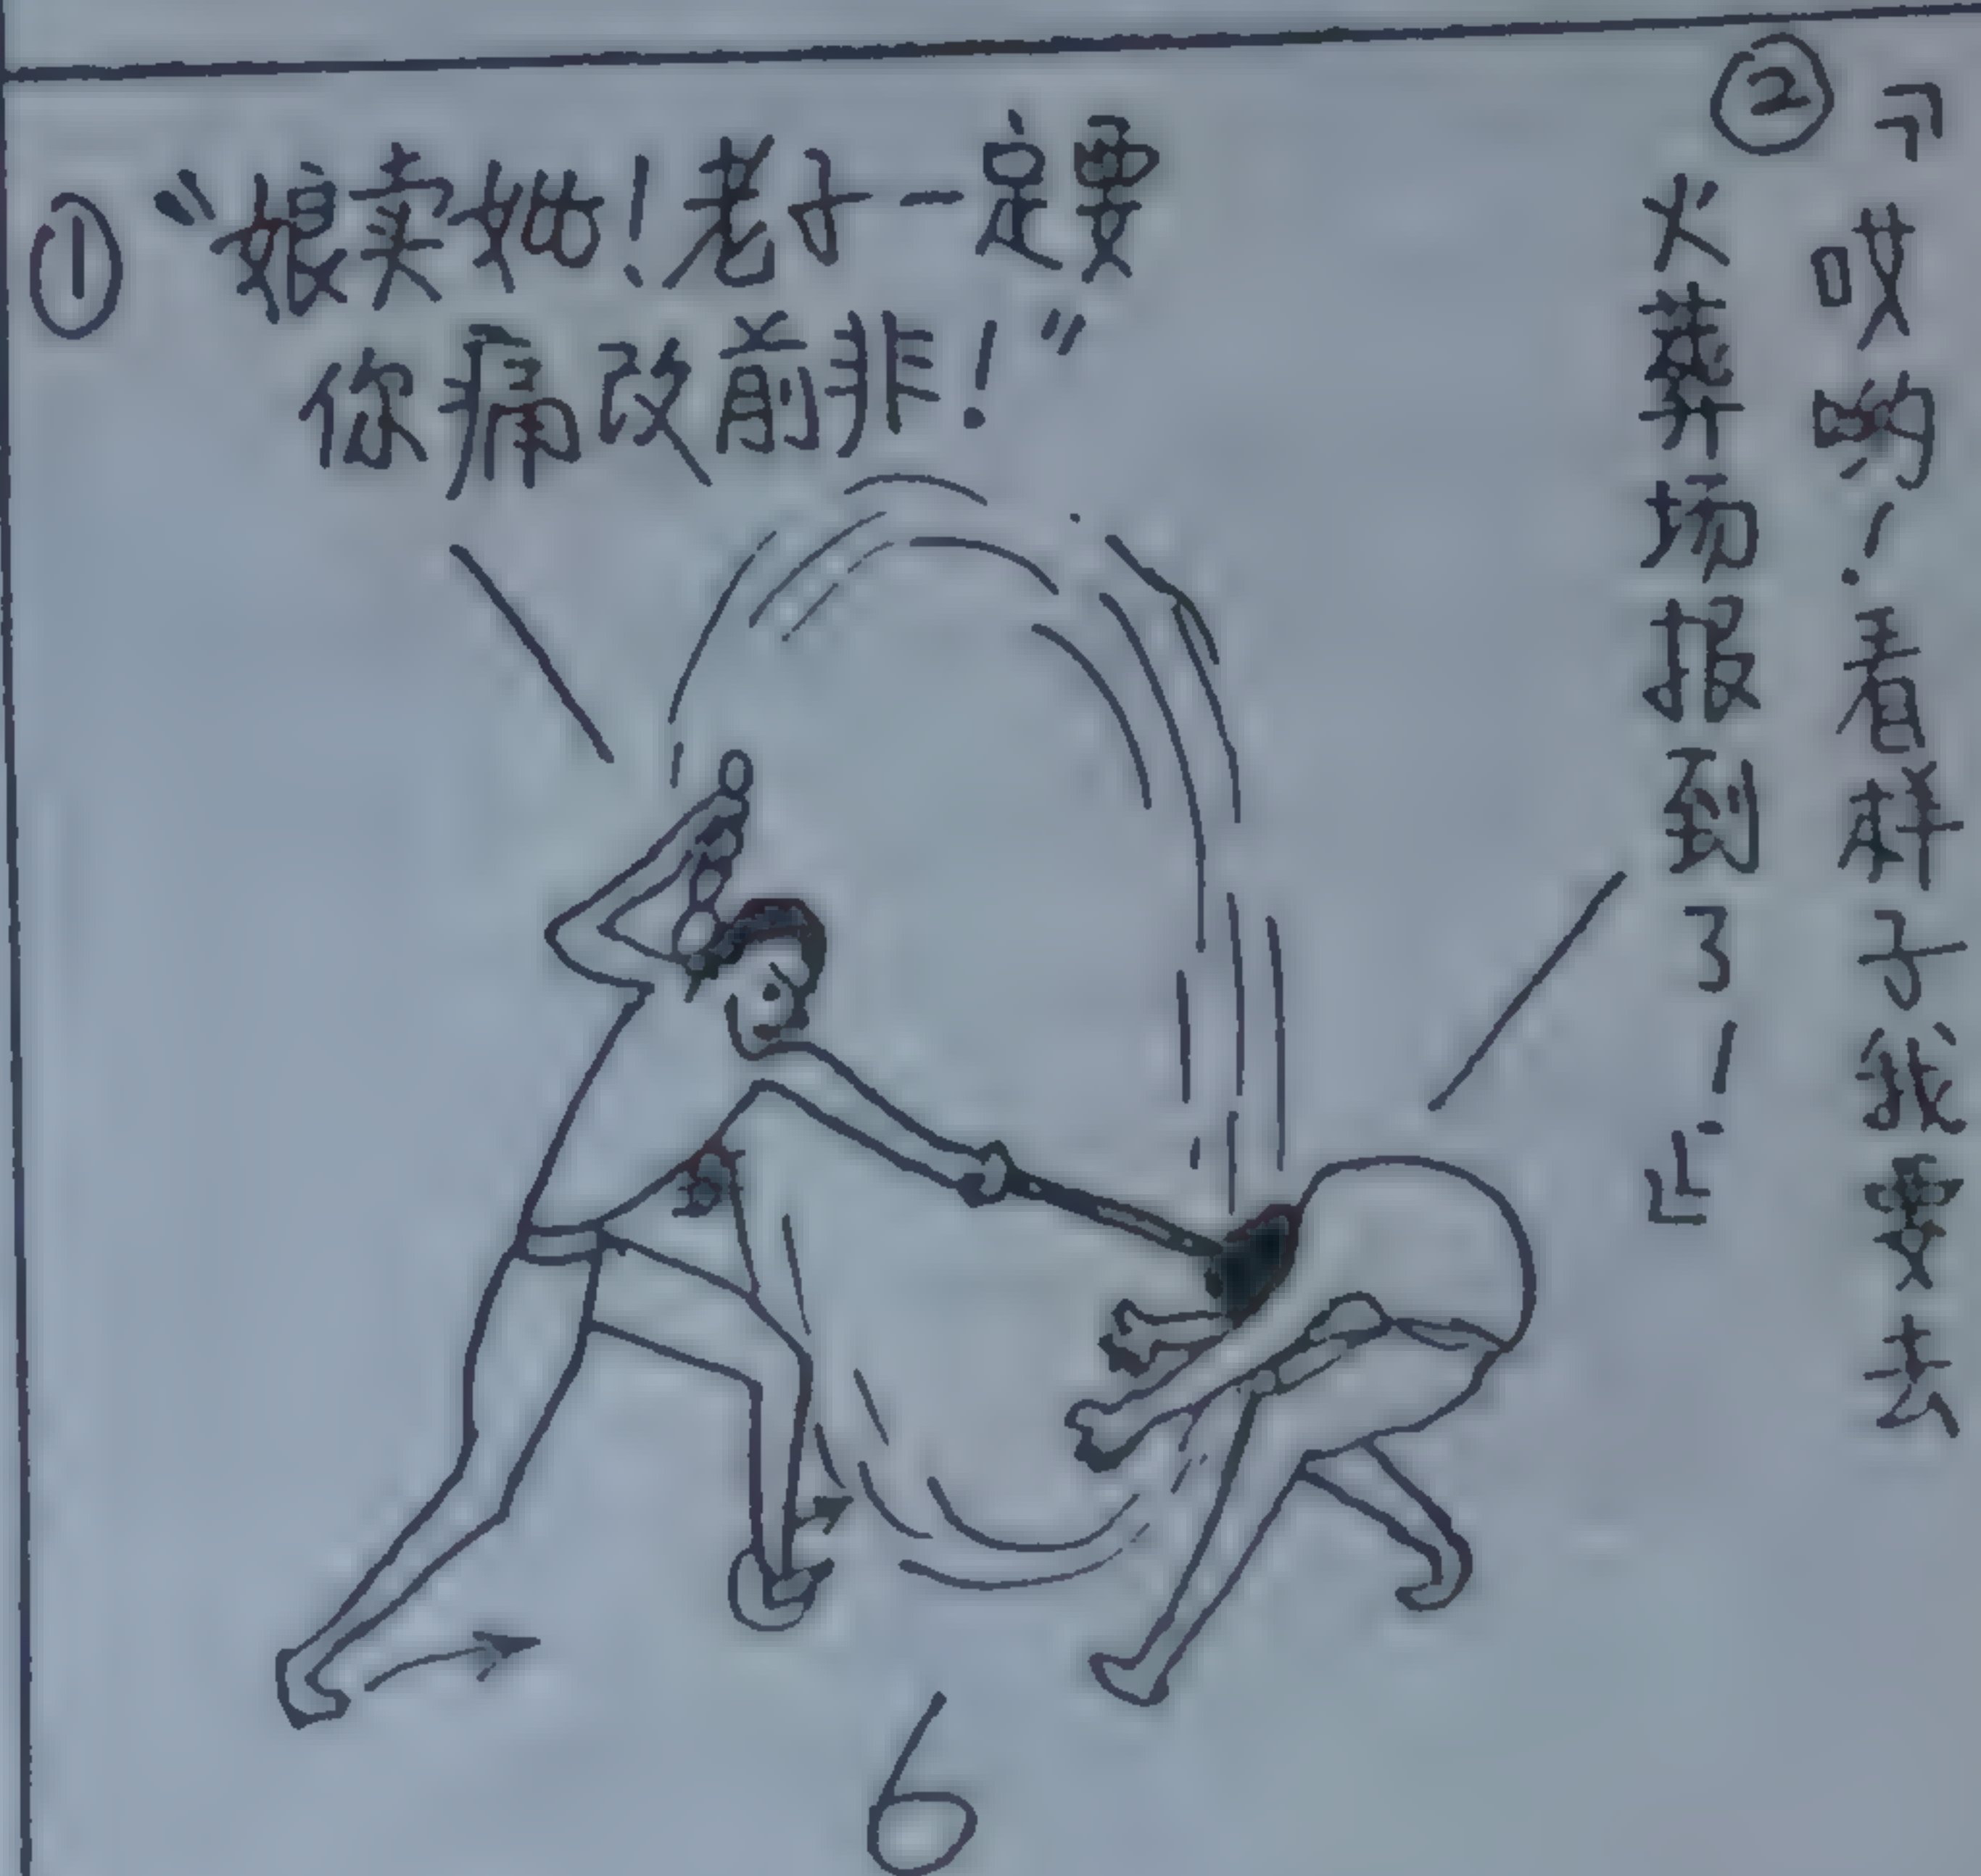 ① "娘卖她！老子一定要
你痛改前非！"
② 『哎哟！看样子我要去
火葬场报到了！』
6